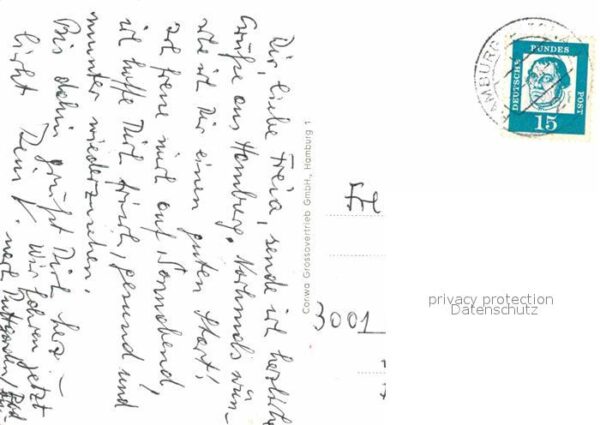 Dir, liebe Freia, sende ich herzliche
Grüße aus Hamburg. Nochmals wün-
sche ich Dir einen guten Start!
Ich freue mich auf Sonnabend,
ich hoffe Dich frisch, gesund und
munter wiederzusehen.
Bis dahin grüßt Dich herz-
lichst Dein
Wir fahren jetzt
nach Puttgarden
Corwa Grossovertrieb GmbH., Hamburg 1
HAMBURG
DEUTSCHE
BUNDES
POST
15
Fre
3001
privacy protection
Datenschutz